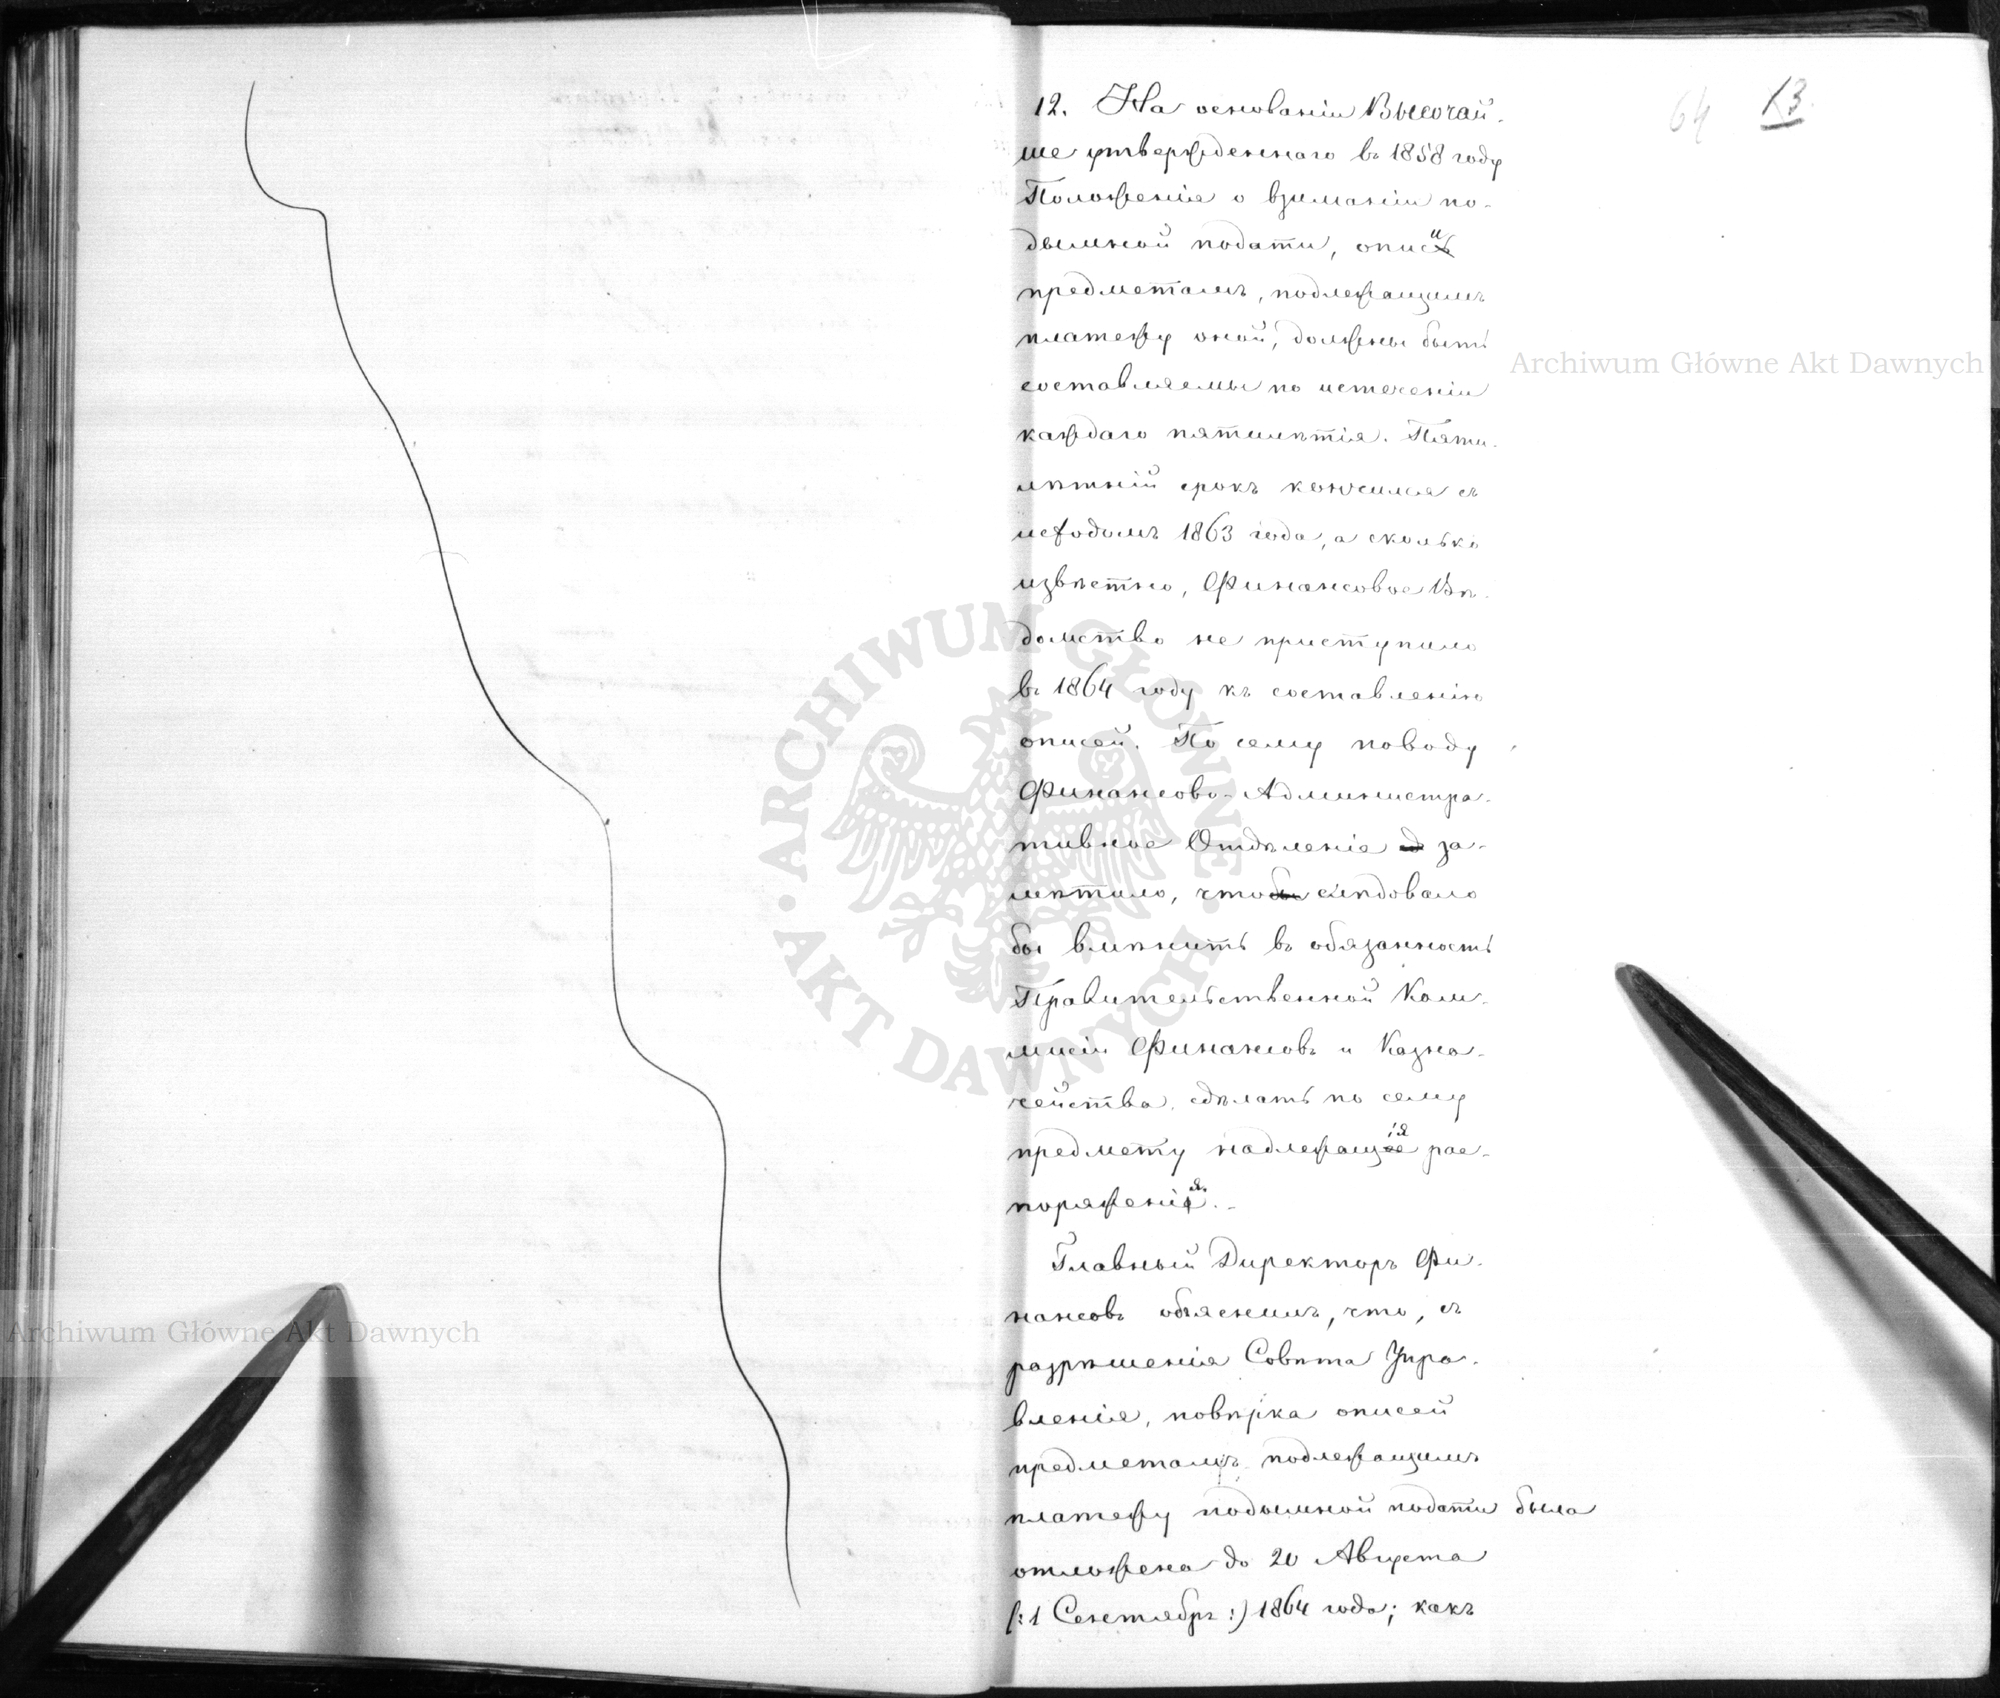 64 13
12. На основаніи Высочай-
ше утвержденнаго въ 1858 году
Положенія о взиманіи по-
дымной подати, описи
предметамъ, подлежащимъ
платежу оной, должны быть
составляемы по истеченіи
каждаго пятилѣтія. Пяти-
лѣтній срокъ кончился съ
исходомъ 1863 года, а сколько
извѣстно, Финансовое Вѣ-
домство не приступило
въ 1864 году къ составленію
описей. По сему поводу
Финансово-Администра-
тивное Отдѣленіе за-
мѣтило, что слѣдовало
бы вмѣнить въ обязанность
Правительственной Ком-
мисіи Финансовъ и Казна-
чейства, сдѣлать по сему
предмету надлежащія рас-
поряженія.-
Главный Директоръ Фи-
нансовъ объяснилъ, что, съ
разрѣшенія Совѣта Упра-
вленія, повѣрка описей
предметамъ подлежащимъ
платежу подымной подати была
отложена до 20 Августа
(:1 Сентября:) 1864 года; какъ
Archiwum Główne Akt Dawnych
Archiwum Główne Akt Dawnych
ARCHIWUM GŁÓWNE
• AKT DAWNYCH •